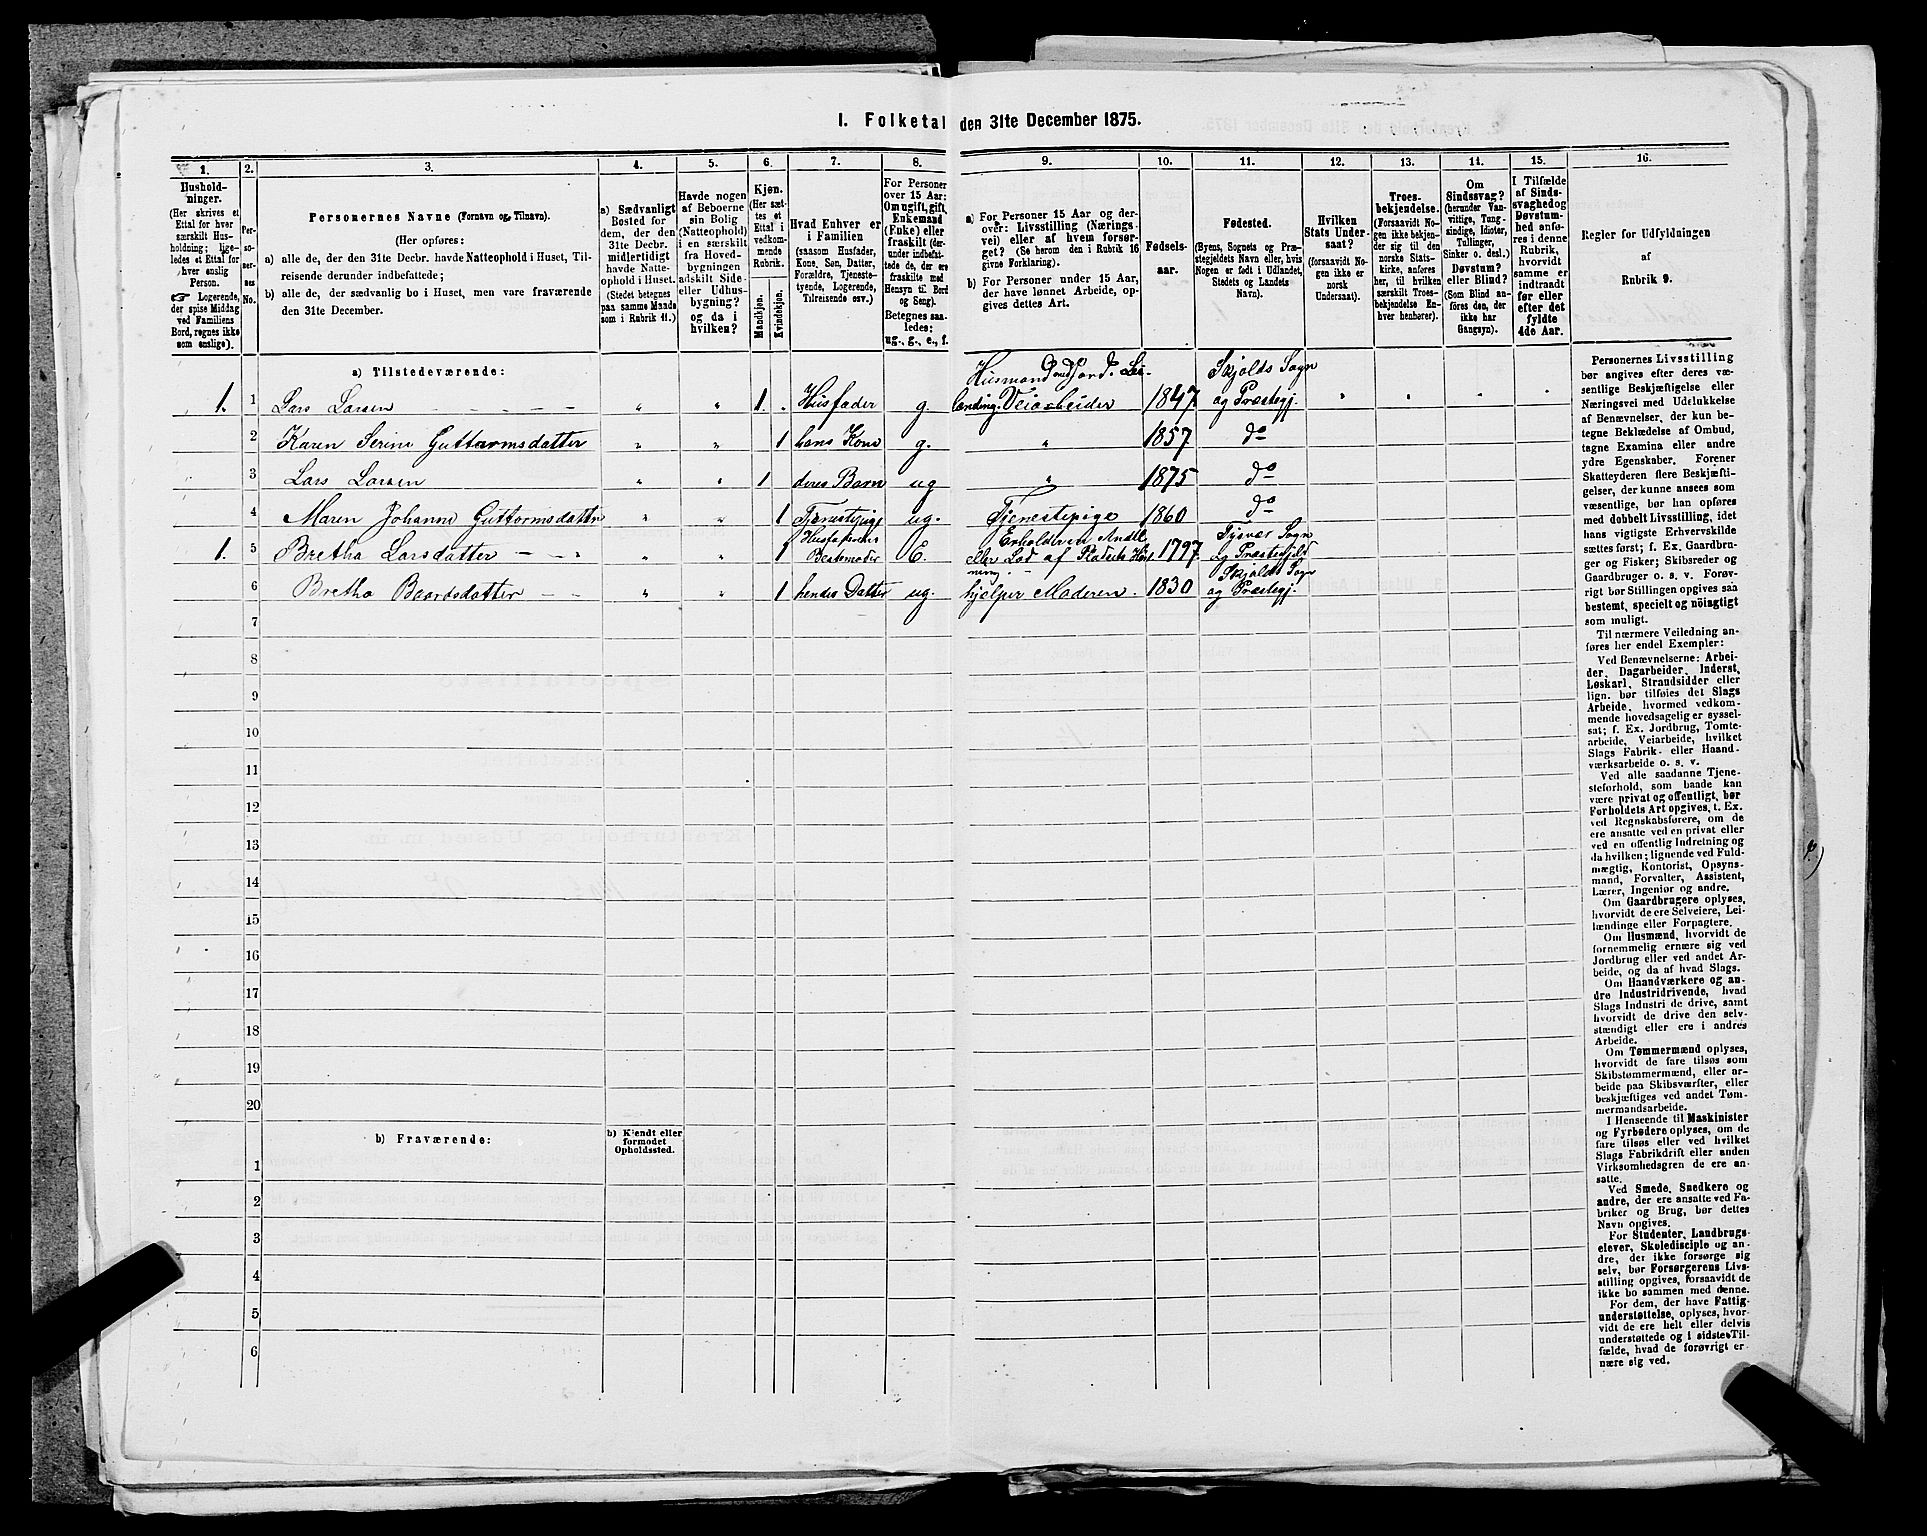 1. Folketal den 31te December 1875.
1.
2.
3.
4.
5.
6.
7.
8.
9.
10.
11.
12.
13.
14.
15.
16.
Hushold-
ninger.
(Her skrives et
Ettal for hver
særskilt Hus-
holdning; lige-
ledes et Ettal for
hver enslig
Person.
☞ Logerende,
der spise Middag
ved Familiens
Bord, regnes ikke
som enslige).
Per-
so-
ner-
nes
No.
Personernes Navne (Fornavn og Tilnavn).
(Her opføres:
a) alle de, der den 31te Decbr. havde Natteophold i Huset, Til-
reisende derunder indbefattede;
b) alle de, der sædvanlig bo i Huset, men vare fraværende
den 31te December.
a) Sædvanligt
Bosted for
dem, der den
31te Decbr.
midlertidigt
havde Natte-
ophold i Huset.
(Stedet betegnes
paa samme Maade
som i Rubrik 11.)
Havde nogen
af Beboerne
sin Bolig
(Natteophold)
i en særskilt
fra Hoved-
bygningen
adskilt Side
eller Udhus-
bygning?
og da i
hvilken?
Kjøn.
(Her sæt-
tes et
Ettal i
vedkom-
mende
Rubrik.
Mandkjøn.
Kvindekjøn.
Hvad Enhver er
i Familien
(saasom Husfader,
Kone, Søn, Datter,
Forældre, Tjeneste-
tyende, Logerende,
Tilreisende osv.)
For Personer
over 15 Aar:
Om ugift, gift,
Enkemand
(Enke) eller
fraskilt (der-
under indbefat-
tede de, der ere
fraskilte med
Hensyn til Bord
og Seng).
Betegnes saa-
ledes:
ug., g., e., f.
a) For Personer 15 Aar og der-
over: Livsstilling (Nærings-
vei) eller af hvem forsør-
get? (Se herom den i Rubrik 16
givne Forklaring).
b) For Personer under 15 Aar,
der have lønnet Arbeide, op-
gives dettes Art.
Fødsels-
aar.
Fødested.
(Byens, Sognets og Præ-
stegjeldets Navn eller, hvis
Nogen er født i Udlandet,
Stedets og Landets
Navn).
Hvilken
Stats Under-
saat?
(forsaavidt No-
gen ikke er
norsk
Undersaat).
Troes-
bekjendelse.
(Forsaavidt No-
gen ikke bekjen-
der sig til den
norske Stats-
kirke, anføres
her, til hvilken
særskilt Troes-
bekjendelse En-
hver henhører).
Om
Sindssvag?
(herunder Van-
vittige, Tung-
sindige, Idioter,
Tullinger,
Sinker o. desl.)
Døvstum?
eller Blind?
(Som Blind an-
føres den, der
ikke har
Gangsyn).
I Tilfælde
af Sinds-
svaghed og
Døvstum-
hed anfø-
res i denne
Rubrik,
hvorvidt
samme er
indtraadt
før eller
efter det
fyldte
4de Aar.
Regler for Udfyldningen
af
Rubrik 9.
a) Tilstedeværende:
1. 1 Lars Larsen „ „ 1. „ Husfader g. Husmand med Jord. Lei-
lænding. Veiarbeider 1847. Skjolds Sogn
og Præstegj.
2 Karen Serine Guttormsdatter „ „ 1 hans Kone g. „ 1857. do
3 Lars Larsen „ „ 1 deres Barn ug „ 1875 do
4 Maren Johanne Guttormsdatter „ „ 1 Tjenestepige ug. Tjenestepige 1860 do
1. 5 Bretha Larsdatter „ „ 1 Husfaderens
Bestemoder E. eller Lod af Pladsen 1797. Tysvær Sogn
og Præstegjeld
6 Bretha Baardsdatter „ „ 1 hendes Datter ug. hjelper Moderen. 1830 Skjolds Sogn
og Præstegj.
7
8
9
10
11
12
13
14
15
16
17
18
19
20
b) Fraværende:
b) Kjendt eller
formodet
Opholdssted.
1
2
3
4
5
6
Personernes Livsstilling
bør angives efter deres væ-
sentlige Beskjæftigelse eller
Næringsvei med Udelukkelse
af Benævnelser, der kun be-
tegne Beklædelse af Ombud,
tagne Examina eller andre
ydre Egenskaber. Forener
Skatteyderen flere Beskjæfti-
gelser, der kunne ansees som
væsentlige, bør han opføres
med dobbelt Livsstilling, idet
hans vigtigste Erhvervskilde
sættes først; f. Ex. Gaardbru-
ger og Fisker; Skibsreder og
Gaardbruger o. s. v. Forøv-
rigt bør Stillingen opgives saa
bestemt, specielt og nöiagtigt
som muligt.
Til nærmere Veiledning an-
føres her endel Exempler:
Ved Benævnelserne: Arbei-
der, Dagarbeider, Inderst,
Løskarl, Strandsidder eller
lign. bør tilføies det Slags
Arbeide, hvormed vedkom-
mende hovedsagelig er syssel-
sat; f. Ex. Jordbrug, Tomte-
arbeide, Veiarbeide, hvilket
Slags Fabrik- eller Haand-
værksarbeide o. s. v.
Ved alle saadanne Tjene-
steforhold, som baade kan
være privat og offentligt, bør
Forholdets Art opgives, t. Ex.
ved Regnskabsførere, om de
ere ansatte ved en privat eller
ved en offentlig Indretning og
da hvilken; lignende ved Fuld-
mægtig, Kontorist, Opsyns-
mand, Forvalter, Assistent,
Lærer, Ingeniør og andre.
Om Gaardbrugere oplyses,
hvorvidt de ere Selveiere, Lei-
lændinge eller Forpagtere.
Om Husmænd, hvorvidt de
fornemmelig ernære sig ved
Jordbrug eller ved andet Ar-
beide, og da af hvad Slags.
Om Haandværkere og an-
dre Industridrivende, hvad
Slags Industri de drive, samt
hvorvidt de drive den selv-
stændigt eller ere i andres
Arbeide.
Om Tømmermænd oplyses,
hvorvidt de fare tilsøs som
Skibstømmermænd, eller ar-
beide paa Skibsværfter, eller
beskjæftiges ved andet Tøm-
mermandsarbeide.
I Henseende til Maskinister
og Fyrbødere oplyses, om de
fare tilsøs eller ved hvilket
Slags Fabrikdrift eller anden
Virksomhedsgren de ere an-
satte.
Ved Smede, Snedkere og
andre, der ere ansatte ved Fa-
briker og Brug, bør dettes
Navn opgives.
For Studenter, Landbrugs-
elever, Skoledisciple og an-
dre, der ikke forsørge sig
selv, bør Forsørgerens Livs-
stilling opgives, forsaavidt de
ikke bo sammen med denne.
For dem, der have Fattig-
understøttelse, oplyses, hvor-
vidt de ere helt eller delvis
understøttede og i sidste Til-
fælde, hvad de forøvrigt er-
nære sig ved.